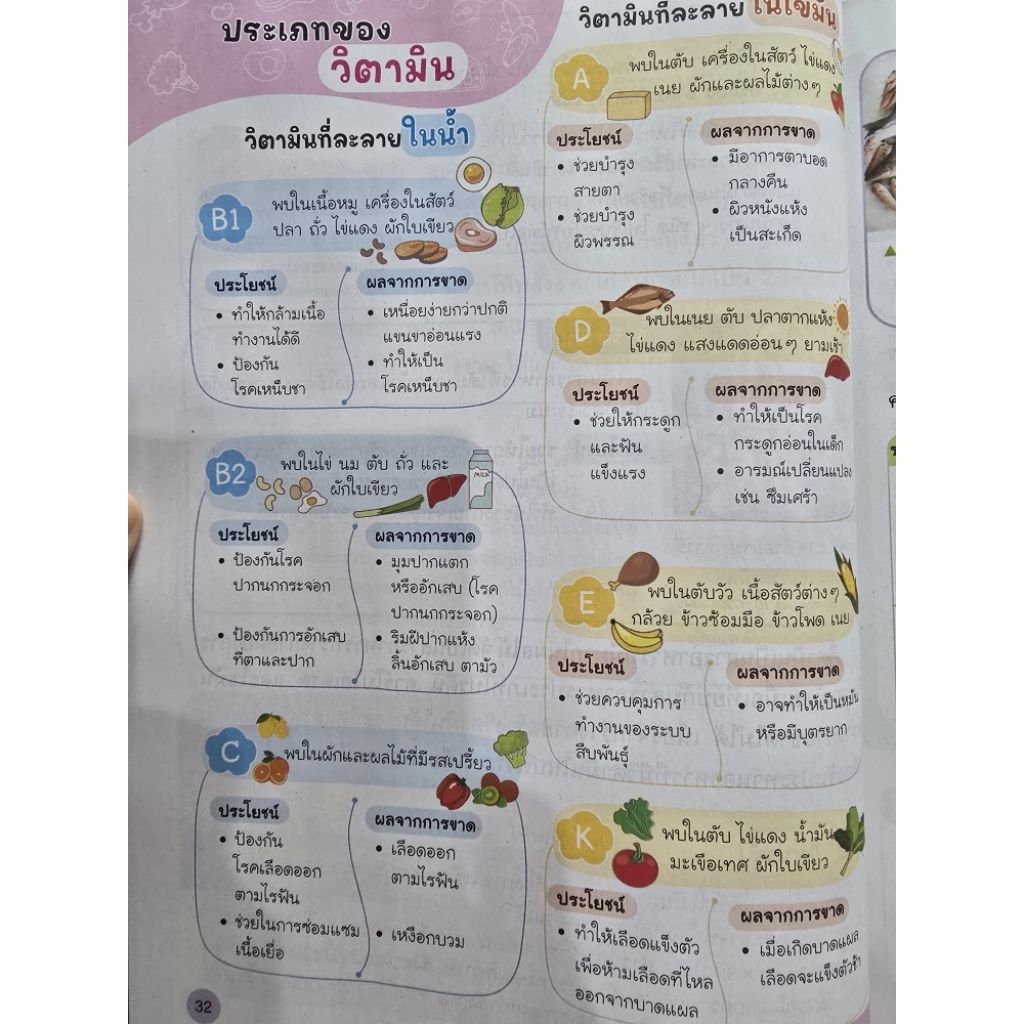 ประเภทของ
วิตามิน
วิตามินที่ละลายในน้ำ
B1
พบในเนื้อหมู เครื่องในสัตว์
ปลา ถั่ว ไข่แดง ผักใบเขียว
ประโยชน์
• ทำให้กล้ามเนื้อ
ทำงานได้ดี
• ป้องกัน
โรคเหน็บชา
ผลจากการขาด
• เหนื่อยง่ายกว่าปกติ
แขนขาอ่อนแรง
• ทำให้เป็น
โรคเหน็บชา
B2
พบในไข่ นม ตับ ถั่ว และ
ผักใบเขียว
MILK
ประโยชน์
• ป้องกันโรค
ปากนกกระจอก
• ป้องกันการอักเสบ
ที่ตาและปาก
ผลจากการขาด
• มุมปากแตก
หรืออักเสบ (โรค
ปากนกกระจอก)
• ริมฝีปากแห้ง
ลิ้นอักเสบ ตามัว
C
พบในผักและผลไม้ที่มีรสเปรี้ยว
ประโยชน์
• ป้องกัน
โรคเลือดออก
ตามไรฟัน
• ช่วยในการซ่อมแซม
เนื้อเยื่อ
ผลจากการขาด
• เลือดออก
ตามไรฟัน
• เหงือกบวม
32
วิตามินที่ละลายในไขมัน
A
พบในตับ เครื่องในสัตว์ ไข่แดง
เนย ผักและผลไม้ต่างๆ
ประโยชน์
• ช่วยบำรุง
สายตา
• ช่วยบำรุง
ผิวพรรณ
ผลจากการขาด
• มีอาการตาบอด
กลางคืน
• ผิวหนังแห้ง
เป็นสะเก็ด
D
พบในเนย ตับ ปลาตากแห้ง
ไข่แดง แสงแดดอ่อนๆ ยามเช้า
ประโยชน์
• ช่วยให้กระดูก
และฟัน
แข็งแรง
ผลจากการขาด
• ทำให้เป็นโรค
กระดูกอ่อนในเด็ก
• อารมณ์เปลี่ยนแปลง
เช่น ซึมเศร้า
E
พบในตับวัว เนื้อสัตว์ต่างๆ
กล้วย ข้าวซ้อมมือ ข้าวโพด เนย
ประโยชน์
• ช่วยควบคุมการ
ทำงานของระบบ
สืบพันธุ์
ผลจากการขาด
• อาจทำให้เป็นหมัน
หรือมีบุตรยาก
K
พบในตับ ไข่แดง น้ำมัน
มะเขือเทศ ผักใบเขียว
ประโยชน์
• ทำให้เลือดแข็งตัว
เพื่อห้ามเลือดที่ไหล
ออกจากบาดแผล
ผลจากการขาด
• เมื่อเกิดบาดแผล
เลือดจะแข็งตัวช้า